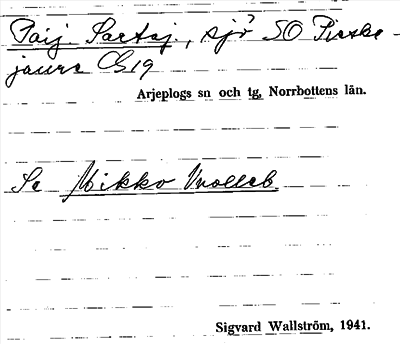 Paij. Partaj., sjö SO Pieske-
jaure C519
Arjeplogs sn och tg, Norrbottens län.
Se Mikko Vuolleb.
Sigvard Wallström, 1941.